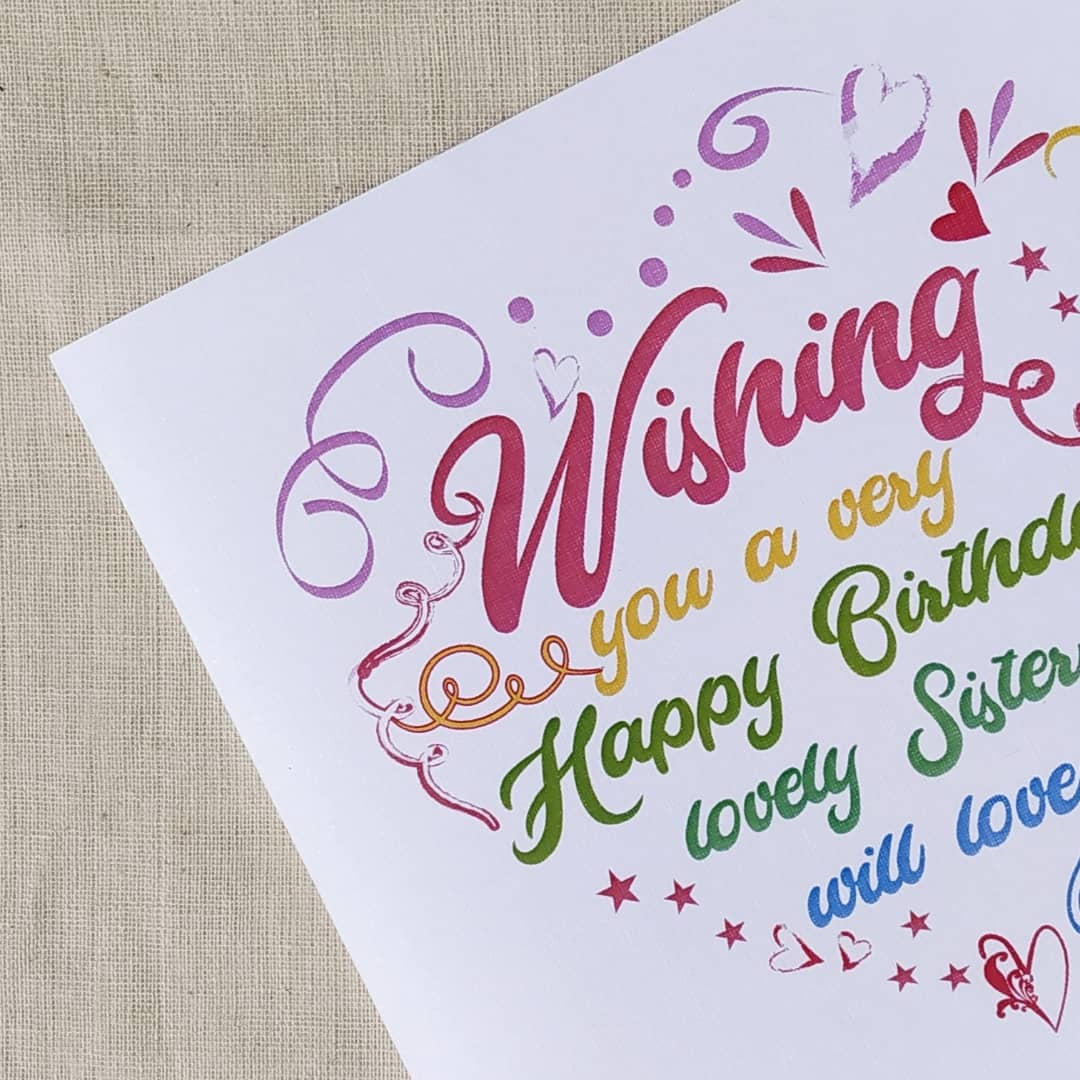 Wishing
you a very
Happy Birthda
lovely Sister
will love